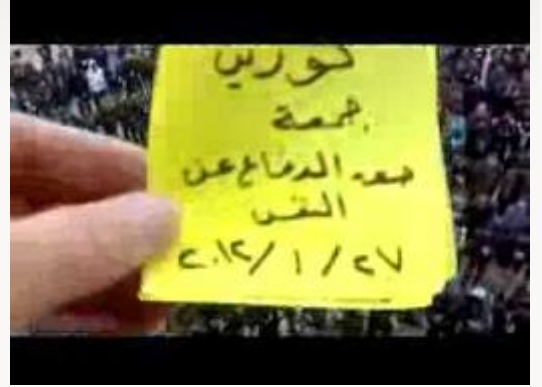 كورين
جمعة
حق الدفاع عن
النفس
٢٠١٢/ ١ / ٢٧